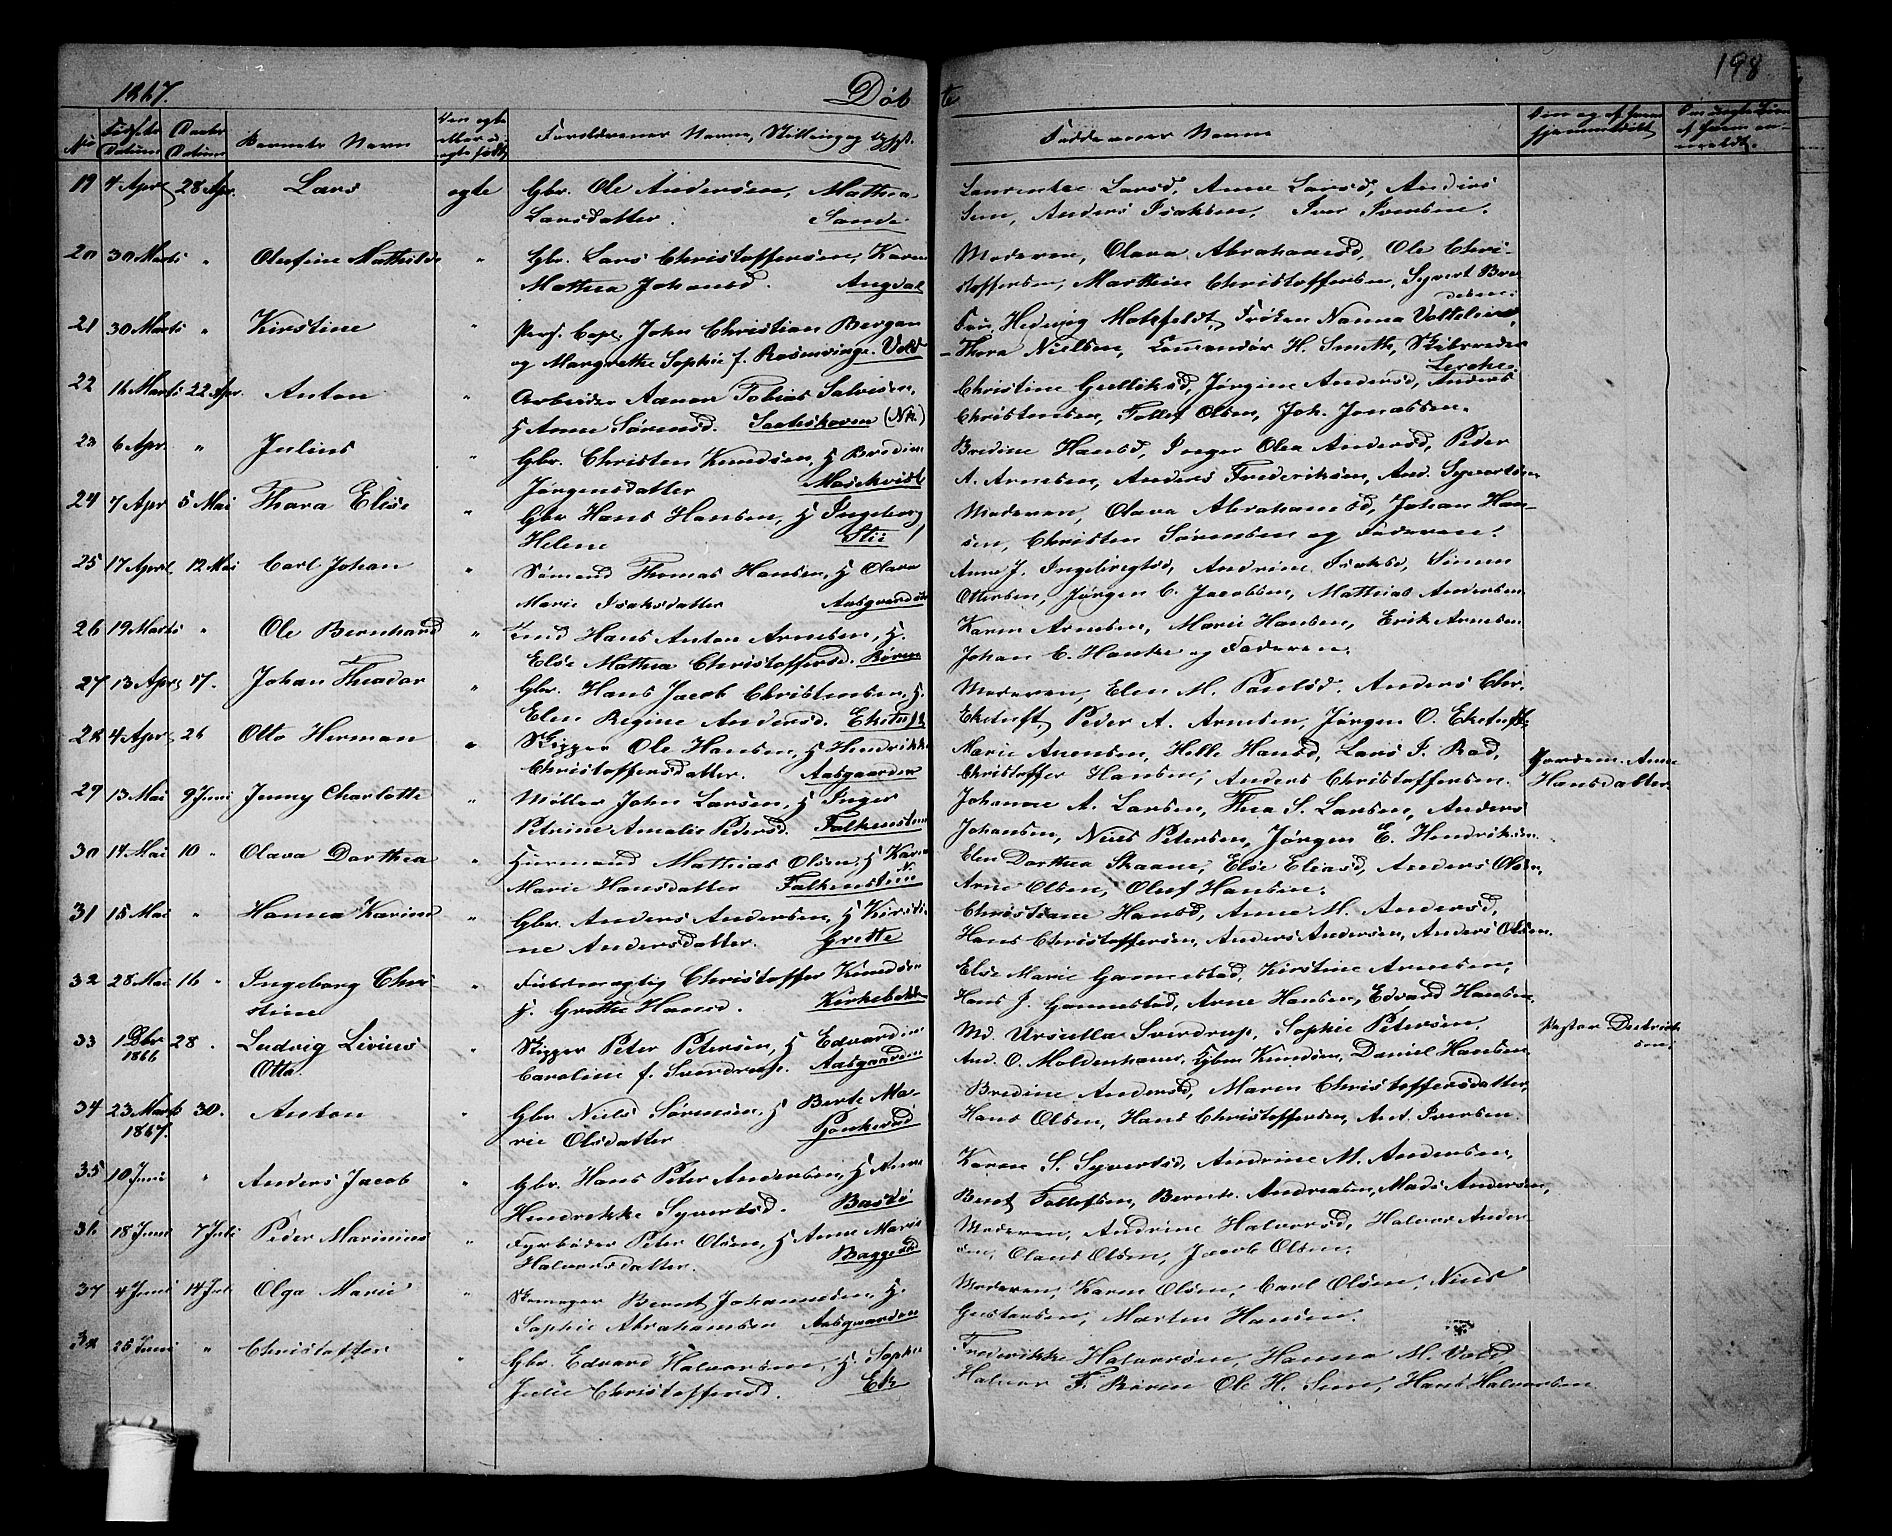 1867.
Døb
te
198
No
Fødsels Datum
Daabs Datum
Barnets Navn
Om ægte eller uægte født
Forældrenes Navne, Stilling og
Faddernes Navne
Om og af hvem hjemmedøbt
19 4 Apr 28 Apr. Lars ægte Gbr. Ole Andersen, Mathea
Larsdatter. Sande
Larsd, Anne Larsd, Anders
Anders Isaksen, Iver Iversen.
20 30 Marts " Olufine Mathilde " Gbr. Lars Christoffersen, Karen
Mathea Johansd. Angdal
Moderen, Olava Abrahamsd, Ole Chri-
stoffersen, Marthin Christoffersen, Syvert
21 30 Marts " Kirstine " John Christian Bergan
og Margrethe Sophie f. Rosenvinge. Vold
Hedvig Motzfeldt, Frøken Nanna
Thora Nielsen, H. Smith,
Lerche.
22 16 Marts 22 Apr. Anton " Arbeider Aanon Tobias Salvesen,
H Anne Sørensd.
Christine Gulliksd, Jørgine Andersd, Anders
Christensen, Tollef Olsen, Joh. Jonassen.
23 6 Apr. " Julius " Gbr. Christen Knudsen, H Bredine
Jørgensdatter
Bredine Hansd, Inger Olea Andersd, Peder
A. Arnesen, Anders Frederiksen, And. Syvertsen
24 7 Apr 5 Mai Thora Elise " Gbr Hans Hansen, H Ingeborg
Helene Stie
Moderen, Olava Abrahamsd, Johan Han-
sen, Christen Sørensen og Faderen.
25 17 April 12 Mai Carl Johan " Sømand Thomas Hansen, H Olava
Marie Isaksdatter Aasgaarden
Anne J. Ingebregtsd, Andrine Isaksd, Simen
Ottersen, Jørgen C. Jacobsen, Mathias Andersen
26 19 Marts " Ole Bernhard " Hans Anton Arnesen, H.
Else Mathea Christoffersd. Røren
Karen Arnesen, Marie Hansen, Erik Arnesen
Johan C. Hanke og Faderen.
27 13 Apr 17. Johan Theodor " Gbr. Hans Jacob Christensen, H.
Elen Regine Andersd.
Moderen, Elen M. Paulsd. Anders Chr.
Eketuft, Peder A. Arnesen, Jørgen O. Eketuft
28 4 Apr 26 Otto Herman " Skipper Ole Hansen, H Hendrikke
Christoffersdatter. Aasgaarden
Marie Hansd, Lars J. Rød,
Christoffer Hansen, Anders Christoffersen.
Jordem. Anne
Hansdatter.
29 13 Mai 9 Juni Jenny Charlotte " Møller John Larsen, H Inger
Petrine Amalie Pedersd. Falkensteen
Johanne A. Larsen, Thea S. Larsen, Anders
Johansen, Niels Petersen, Jørgen E. Hendriksen
30 14 Mai 10 " Olava Dorthea " Huusmand Mathias Olsen, H Karen
Marie Hansdatter N. Falkensteen
Elen Dorthea Skaane, Else Eliasd, Anders Olsen,
Arne Olsen, Oluf Hansen.
31 15 Mai " Hanna Karine " Gbr. Anders Andersen, H Kirsti-
ne Andersdatter. Grette
Christiane Hansd, Anne M. Andersd,
Hans Christoffersen, Anders Andersen, Anders Olsen.
32 28 Mai 16 " Ingeborg Chri-
stine " Christoffer Knudsen
H. Grethe Hansd. Kirkebakken
Else Marie Gannestad, Kirstine Arnesen,
Hans J. Gannestad, Arne Hansen, Edvard Hansen.
33 1 Dbr 1866 28 " Ludvig Livius
Otto. " Skipper Peter Petersen, H Edvardine
Caroline f. Sverdrup. Aasgaarden
Md. Ursulla Sverdrup, Sophie Petersen,
And. O. Moldenhauer, Gbr Knudsen, Daniel Hansen
Pastor Diedrich-
sen,
34 23 Marts 1867. 30. Anton " Gbr Niels Sørensen, H Berte Ma-
rie Olsdatter.
Bredine Andersd, Maren Christoffersdatter,
Hans Olsen, Hans Christoffersen, And. Iversen.
35 10 Juni " Anders Jacob " Gbr. Hans Peter Andersen, H Anne
Hendrikke Syvertsd. Bastø
Karen S. Syvertsd, Andrine M. Andersen,
Bent Tollefsen, Bernt Andreasen, Mads Andersen,
36 18 Juni 7 Juli Peder Marinius " Fyrbøder Peter Olsen, H Anne Marie
Halvorsdatter. Baggerød
Moderen, Andrine Halvorsd, Halvor Ander-
sen, Claus Olsen, Jacob Olsen.
37 4 Juni 14 Juli Olga Marie " Skomager Bernt Johannesen, H.
Sophie Abrahamsen Aasgaarden
Moderen, Karen Olsen, Carl Olsen, Niels
Gustavsen, Morten Hansen.
38 25 Juni " Christoffer " Gbr. Edvard Halvorsen, H Sophie
Julie Christoffersd. Ek
Frederikke Halvorsen, Hanna M. Vold,
Halvor F. Røren Ole H. Hans Halvorsen